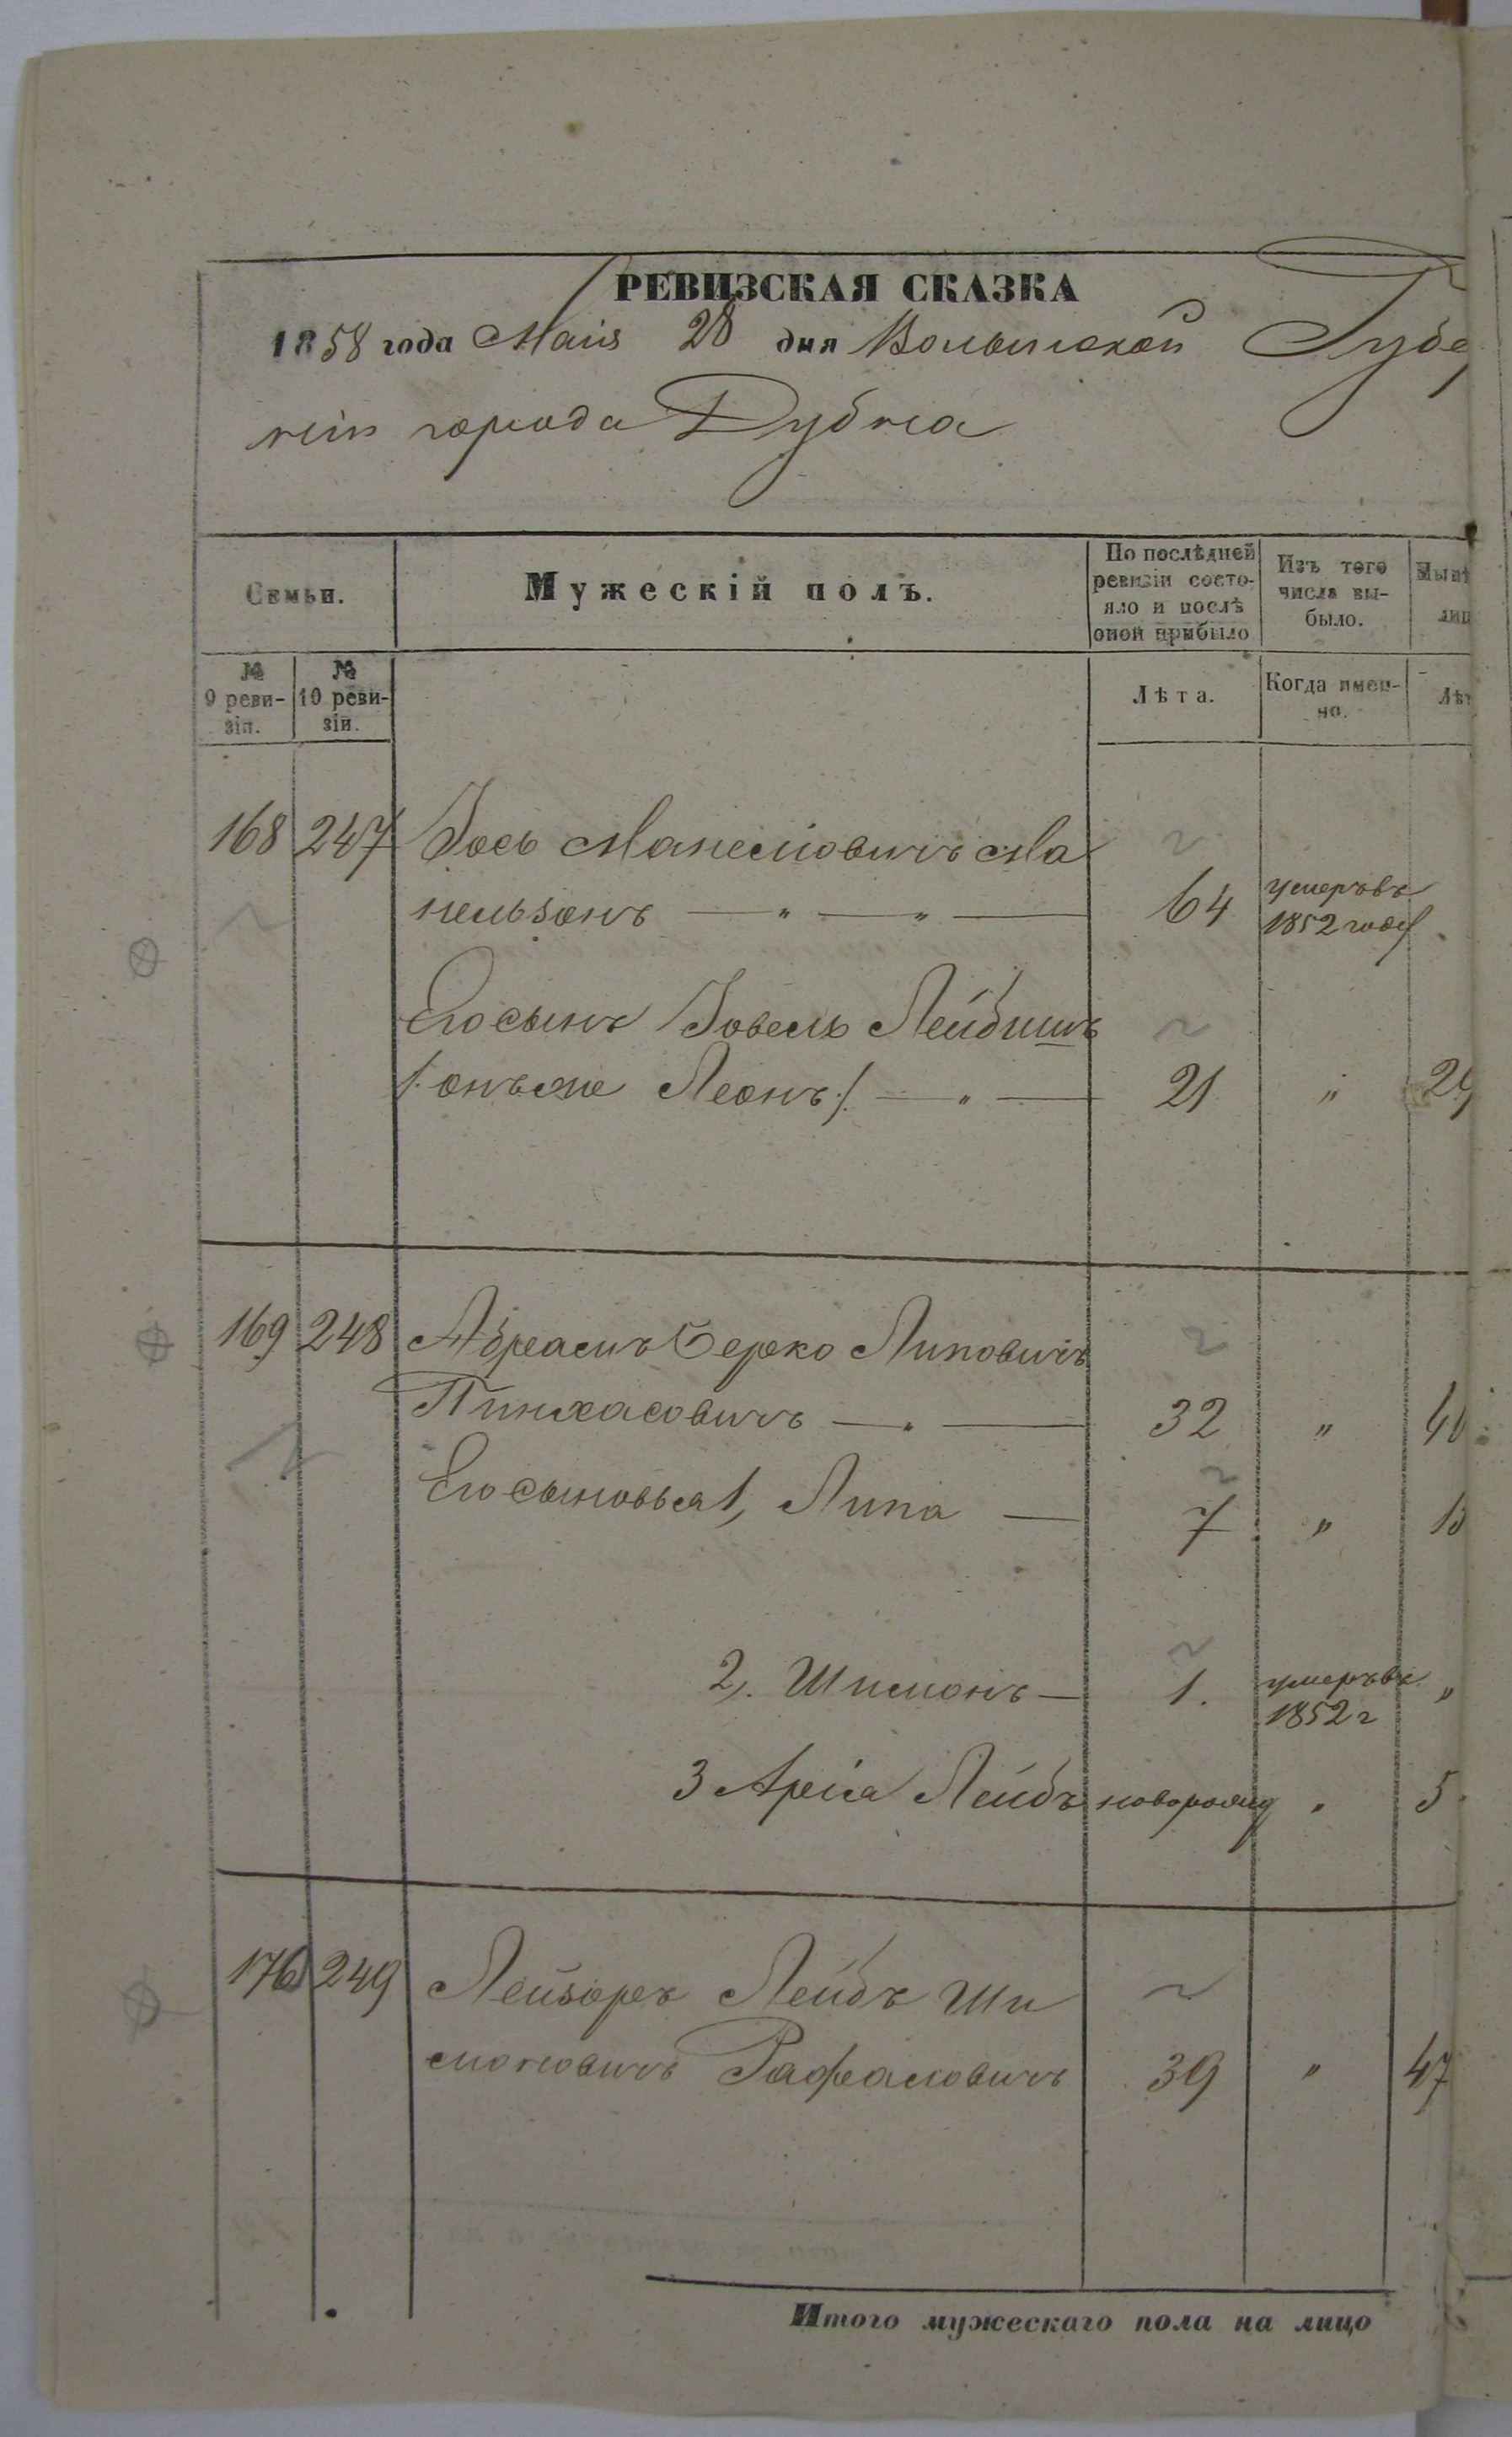 РЕВИЗСКАЯ СКАЗКА
1858 года Маія 28 дня Волынской Губе
ніи города Дубна
Семьи.
Мужескій полъ.
По послѣдней
ревизіи состо-
яло и послѣ
оной прибыло
Изъ того
числа вы-
было.
Нынѣ
лиц
№
9 реви-
зіи.
№
10 реви-
зіи.
Лѣта.
Когда имен-
но.
Лѣт
168 247 Іось Манелiовичъ Ма
нельзонъ — „ — „ — 64 умеръ въ
1852 году
Его сынъ Іовель Лейбишъ
/: онъ же Леонъ :/ — „ — 21 „ 29
169 248 Абрамъ Берко Липовичъ
Пинхасовичъ — „ — 32 „ 40
Его сыновья 1, Липа — 7 „ 15
2,. Шимонъ — 1. умеръ въ
1852 г „
3 Аріа Лейбъ новорожд „ 5
170 249 Лейзоръ Лейбъ Ши
моновичъ Рафаловичъ 39 „ 47
Итого мужескаго пола на лицо